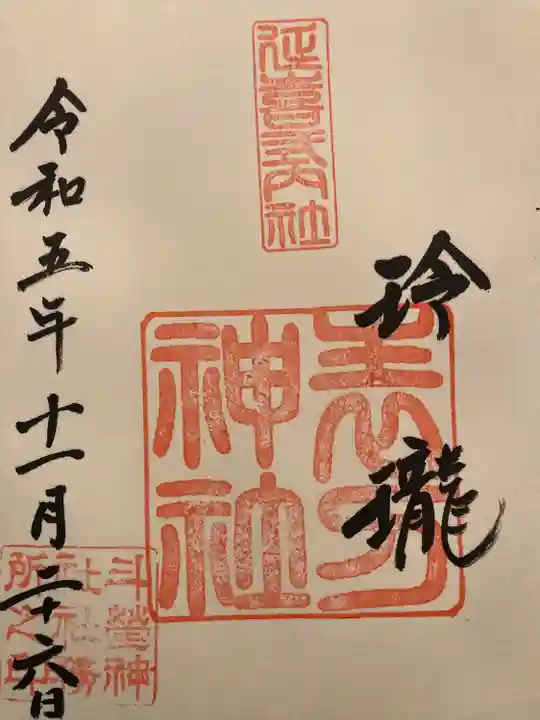 延喜式内社
玲瓏
神社
令和五年十一月二十六日
斗瑩神
社社務
所之印